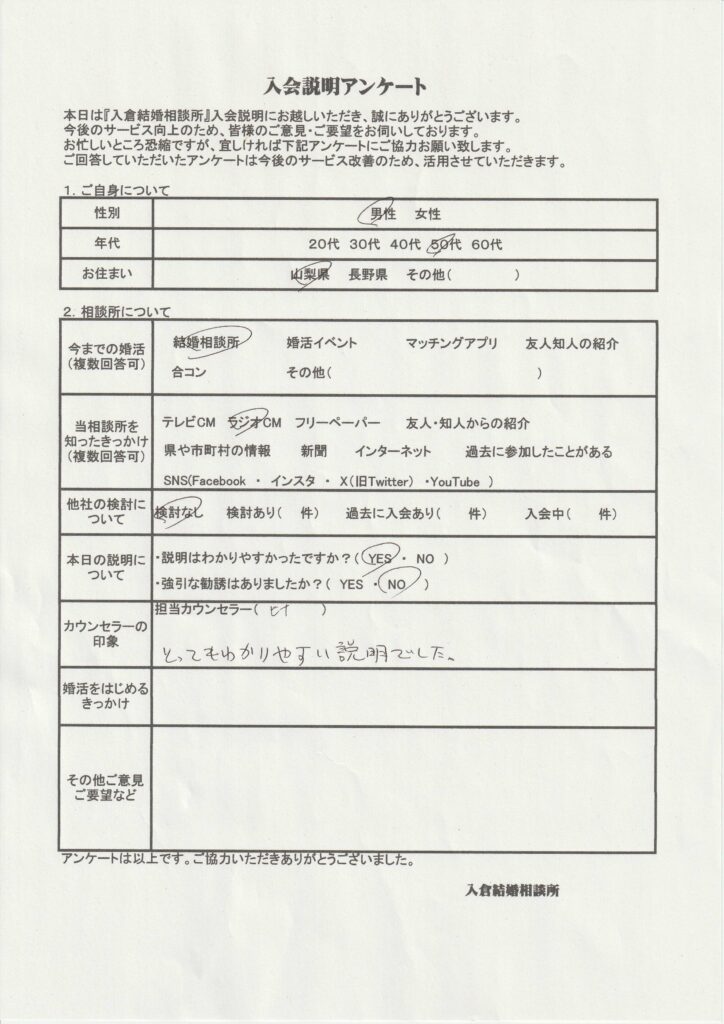 入会説明アンケート
本日は『入倉結婚相談所』入会説明にお越しいただき、誠にありがとうございます。
今後のサービス向上のため、皆様のご意見・ご要望をお伺いしております。
お忙しいところ恐縮ですが、宜しければ下記アンケートにご協力お願い致します。
ご回答していただいたアンケートは今後のサービス改善のため、活用させていただきます。
1．ご自身について
性別 男性 女性
年代 20代 30代 40代 50代 60代
お住まい 山梨県 長野県 その他( )
2．相談所について
今までの婚活
(複数回答可)
結婚相談所 婚活イベント マッチングアプリ 友人知人の紹介
合コン その他( )
当相談所を
知ったきっかけ
(複数回答可)
テレビCM ラジオCM フリーペーパー 友人・知人からの紹介
県や市町村の情報 新聞 インターネット 過去に参加したことがある
SNS(Facebook ・ インスタ ・ X(旧Twitter) ・YouTube )
他社の検討に
ついて
検討なし 検討あり( 件) 過去に入会あり( 件) 入会中( 件)
本日の説明に
ついて
・説明はわかりやすかったですか？( YES ・ NO )
・強引な勧誘はありましたか？( YES ・ NO )
カウンセラーの
印象
担当カウンセラー( )
とってもわかりやすい説明でした。
婚活をはじめる
きっかけ
その他ご意見
ご要望など
アンケートは以上です。ご協力いただきありがとうございました。
入倉結婚相談所